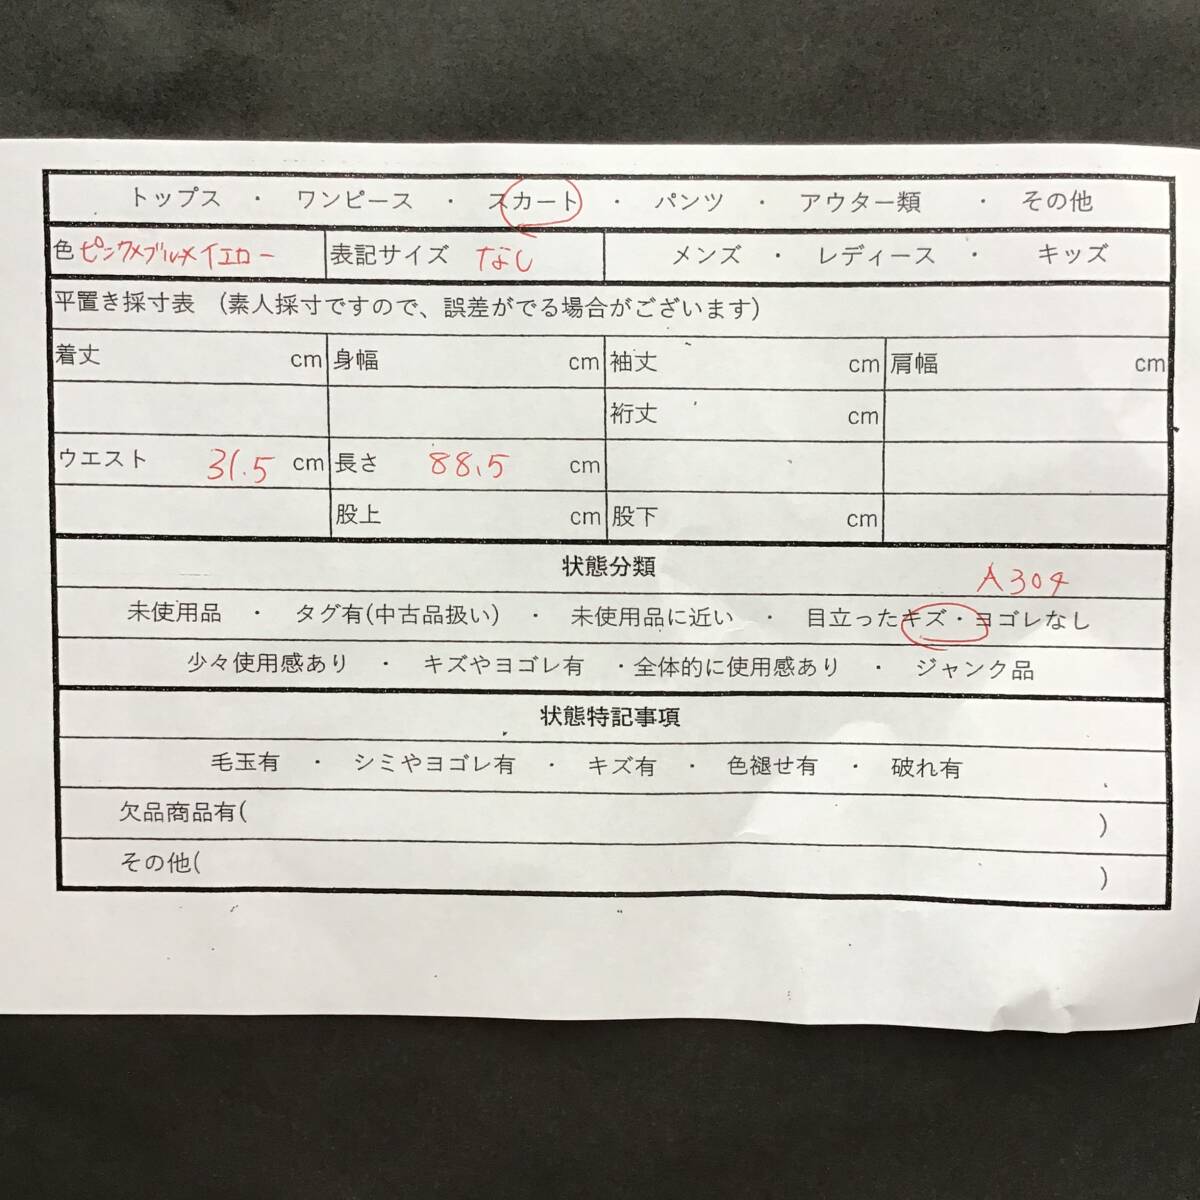 トップス ・ ワンピース ・ スカート ・ パンツ ・ アウター類 ・ その他
色 ピンク×ブルー×イエロー 表記サイズ なし メンズ ・ レディース ・ キッズ
平置き採寸表 (素人採寸ですので、誤差がでる場合がございます)
着丈 cm 身幅 cm 袖丈 cm 肩幅 cm
裄丈 cm
ウエスト 31.5 cm 長さ 88.5 cm
股上 cm 股下 cm
状態分類 A304
未使用品 ・ タグ有(中古品扱い) ・ 未使用品に近い ・ 目立ったキズ・ヨゴレなし
少々使用感あり ・ キズやヨゴレ有 ・全体的に使用感あり ・ ジャンク品
状態特記事項
毛玉有 ・ シミやヨゴレ有 ・ キズ有 ・ 色褪せ有 ・ 破れ有
欠品商品有( )
その他( )